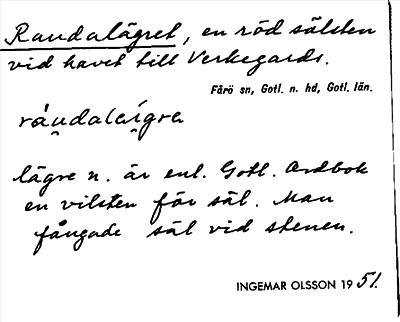 Raudalägret, en röd sälsten
vid havet till Verkegards.
Fårö sn, Gotl. n. hd, Gotl. län.
lägre n. är enl. Gotl. Ordbok
en vilsten för säl. Man
fångade säl vid stenen.
INGEMAR OLSSON 1951.